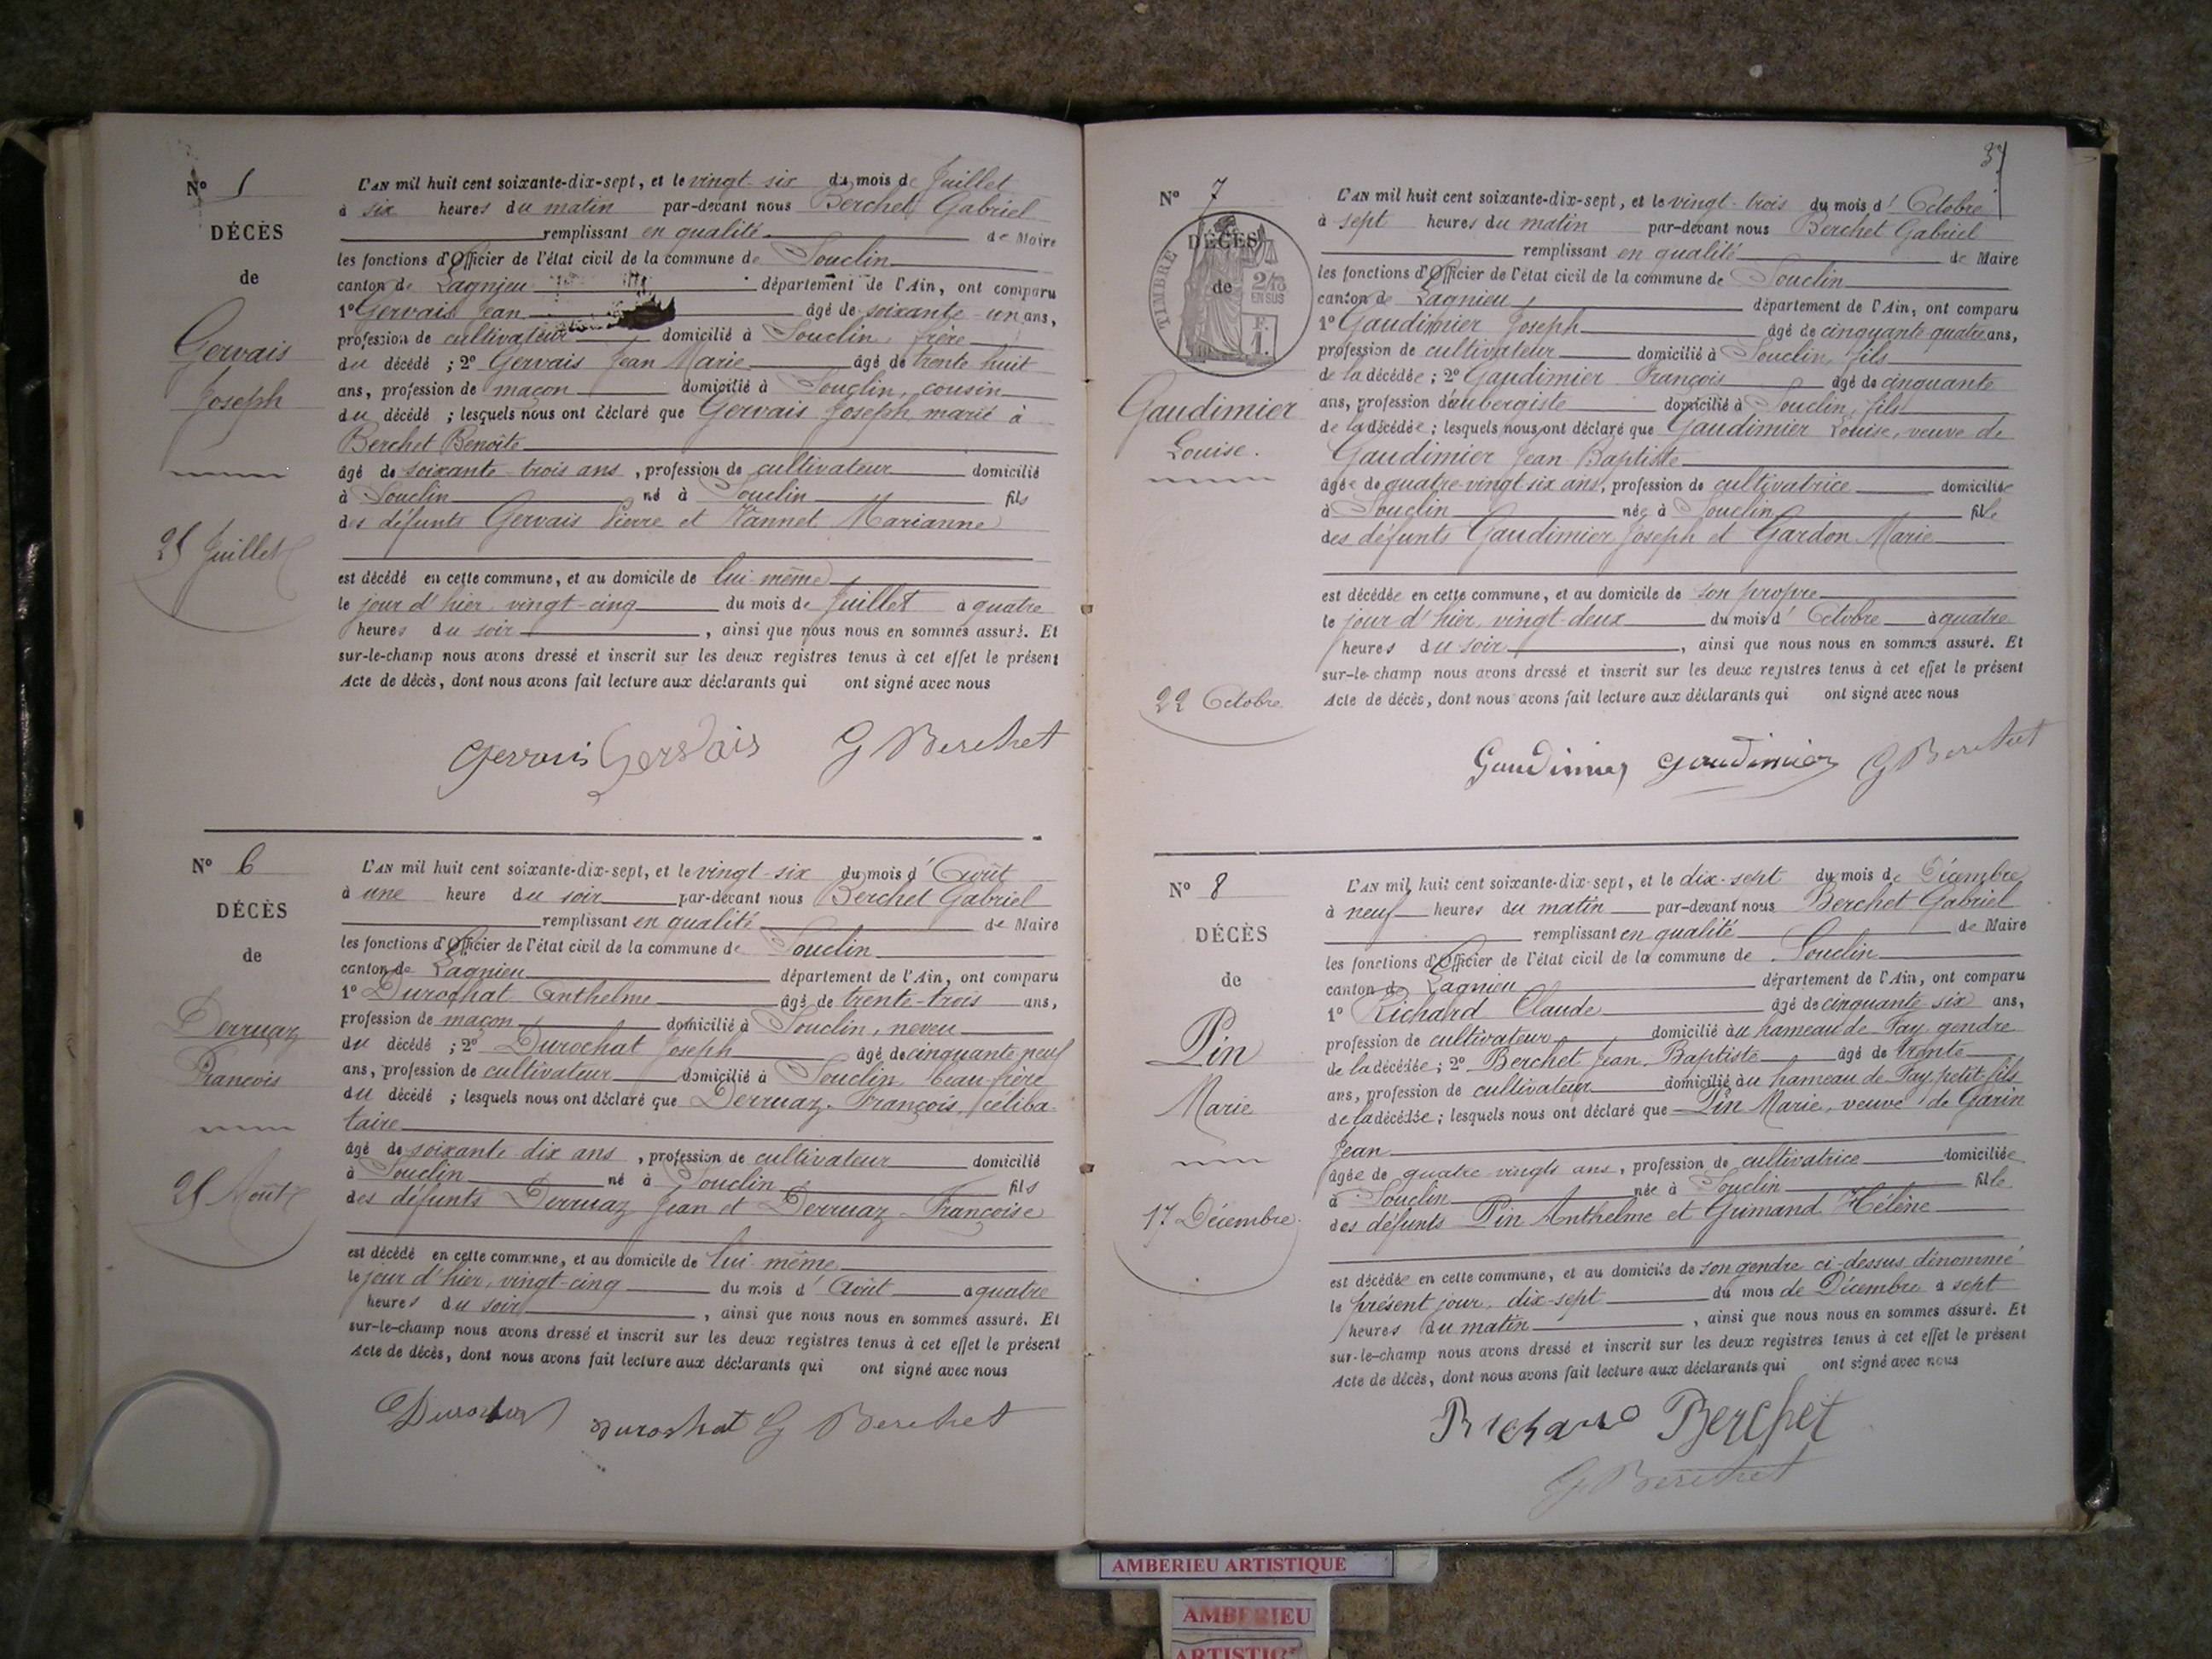 N° 5
DÉCÈS
de
Gervais
Joseph
25 Juillet
L'AN mil huit cent soixante-dix-sept, et le vingt-six du mois de Juillet
à six heures du matin par-devant nous Berchet Gabriel
remplissant en qualité de Maire
les fonctions d'Officier de l'état civil de la commune de Souclin
canton de Lagnieu département de l'Ain, ont comparu
1° Gervais Jean âgé de soixante-un ans,
profession de cultivateur domicilié à Souclin, frère
du décédé ; 2° Gervais Jean Marie âgé de trente huit
ans, profession de maçon domicilié à Souclin, cousin
du décédé ; lesquels nous ont déclaré que Gervais Joseph, marié à
Berchet Benoîte
âgé de soixante-trois ans, profession de cultivateur domicilié
à Souclin né à Souclin fils
des défunts Gervais Pierre et Vannet Marianne
est décédé en cette commune, et au domicile de lui-même
le jour d'hier, vingt-cinq du mois de Juillet à quatre
heures du soir, ainsi que nous nous en sommes assuré. Et
sur-le-champ nous avons dressé et inscrit sur les deux registres tenus à cet effet le présent
Acte de décès, dont nous avons fait lecture aux déclarants qui ont signé avec nous
Gervais Gervais G Berchet
N° 6
DÉCÈS
de
Derruaz
François
25 Août
L'AN mil huit cent soixante-dix-sept, et le vingt-six du mois d'Août
à une heure du soir par-devant nous Berchet Gabriel
remplissant en qualité de Maire
les fonctions d'Officier de l'état civil de la commune de Souclin
canton de Lagnieu département de l'Ain, ont comparu
1° Durochat Anthelme âgé de trente-trois ans,
profession de maçon domicilié à Souclin, neveu
du décédé ; 2° Durochat Joseph âgé de cinquante neuf
ans, profession de cultivateur domicilié à Souclin, beau-frère
du décédé ; lesquels nous ont déclaré que Derruaz François, céliba-
taire
âgé de soixante dix ans, profession de cultivateur domicilié
à Souclin né à Souclin fils
des défunts Derruaz Jean et Derruaz Françoise
est décédé en cette commune, et au domicile de lui-même
le jour d'hier, vingt-cinq du mois d'Août à quatre
heures du soir, ainsi que nous nous en sommes assuré. Et
sur-le-champ nous avons dressé et inscrit sur les deux registres tenus à cet effet le présent
Acte de décès, dont nous avons fait lecture aux déclarants qui ont signé avec nous
Durochat Durochat G Berchet
37
N° 7
DÉCÈS
de
TIMBRE
2/10
EN SUS
F.
1.
Gaudimier
Louise.
22 Octobre
L'AN mil huit cent soixante-dix-sept, et le vingt-trois du mois d'Octobre
à sept heures du matin par-devant nous Berchet Gabriel
remplissant en qualité de Maire
les fonctions d'Officier de l'état civil de la commune de Souclin
canton de Lagnieu département de l'Ain, ont comparu
1° Gaudimier Joseph âgé de cinquante-quatre ans,
profession de cultivateur domicilié à Souclin, fils
de la décédée ; 2° Gaudimier François âgé de cinquante
ans, profession d'aubergiste domicilié à Souclin, fils
de la décédée ; lesquels nous ont déclaré que Gaudimier Louise, veuve de
Gaudimier Jean Baptiste
âgée de quatre-vingt-six ans, profession de cultivatrice domiciliée
à Souclin née à Souclin fille
des défunts Gaudimier Joseph et Gardon Marie
est décédée en cette commune, et au domicile de son propre
le jour d'hier, vingt-deux du mois d'Octobre à quatre
heures du soir, ainsi que nous nous en sommes assuré. Et
sur-le-champ nous avons dressé et inscrit sur les deux registres tenus à cet effet le présent
Acte de décès, dont nous avons fait lecture aux déclarants qui ont signé avec nous
Gaudimier Gaudimier G Berchet
N° 8
DÉCÈS
de
Pin
Marie
17 Décembre
L'AN mil huit cent soixante-dix-sept, et le dix-sept du mois de Décembre
à neuf heures du matin par-devant nous Berchet Gabriel
remplissant en qualité de Maire
les fonctions d'Officier de l'état civil de la commune de Souclin
canton de Lagnieu département de l'Ain, ont comparu
1° Richard Claude âgé de cinquante-six ans,
profession de cultivateur domicilié au hameau de Fay, gendre
de la décédée ; 2° Berchet Jean Baptiste âgé de trente
ans, profession de cultivateur domicilié au hameau de Fay, petit-fils
de la décédée ; lesquels nous ont déclaré que Pin Marie, veuve de Garin
Jean
âgée de quatre vingts ans, profession de cultivatrice domiciliée
à Souclin née à Souclin fille
des défunts Pin Anthelme et Grimand Hélène
est décédée en cette commune, et au domicile de son gendre ci-dessus dénommé
le présent jour, dix-sept du mois de Décembre à sept
heures du matin, ainsi que nous nous en sommes assuré. Et
sur-le-champ nous avons dressé et inscrit sur les deux registres tenus à cet effet le présent
Acte de décès, dont nous avons fait lecture aux déclarants qui ont signé avec nous
Richard Berchet
G Berchet
AMBERIEU ARTISTIQUE
AMBERIEU
ARTISTIQUE